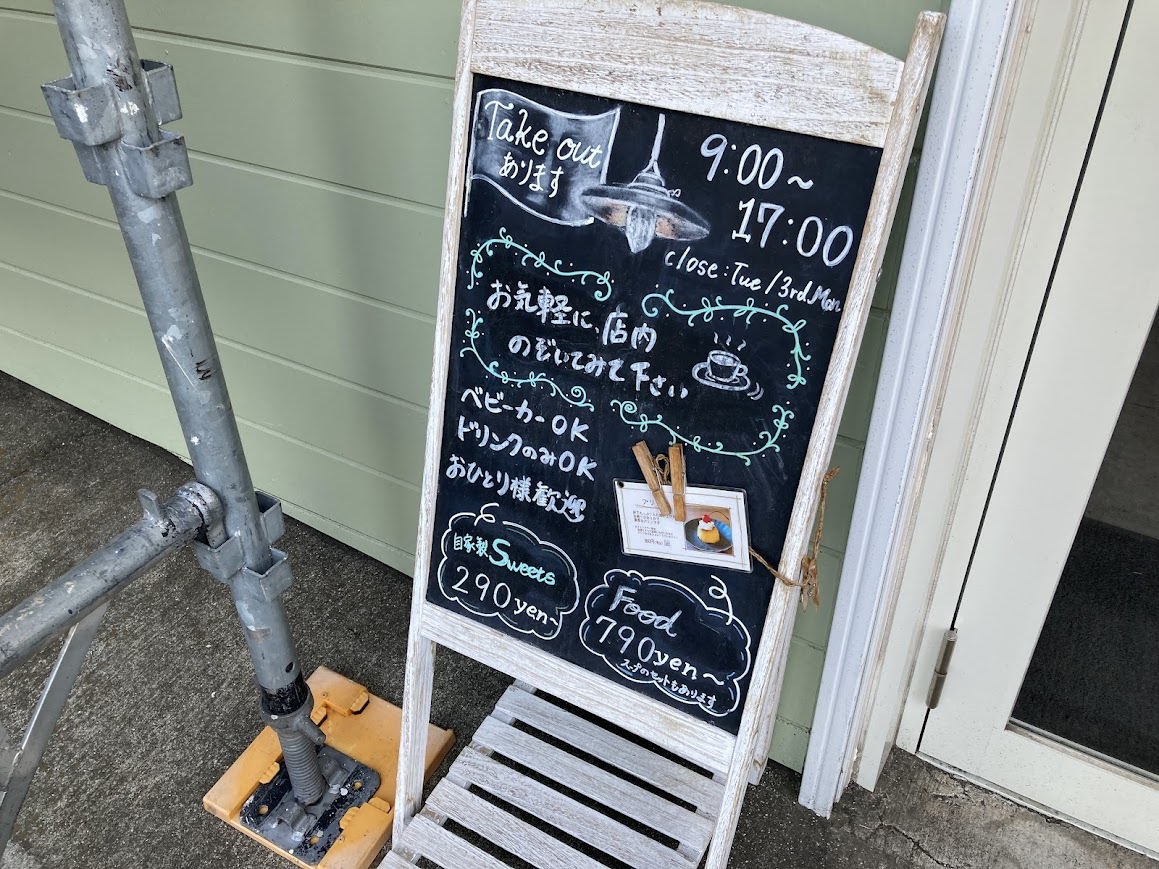 Take out
あります
9:00~
17:00
close:Tue/3rd.Mon
お気軽に、店内
のぞいてみて下さい
ベビーカーOK
ドリンクのみOK
おひとり様歓迎
自家製Sweets
290yen~
Food
790yen~
スープのセットもあります